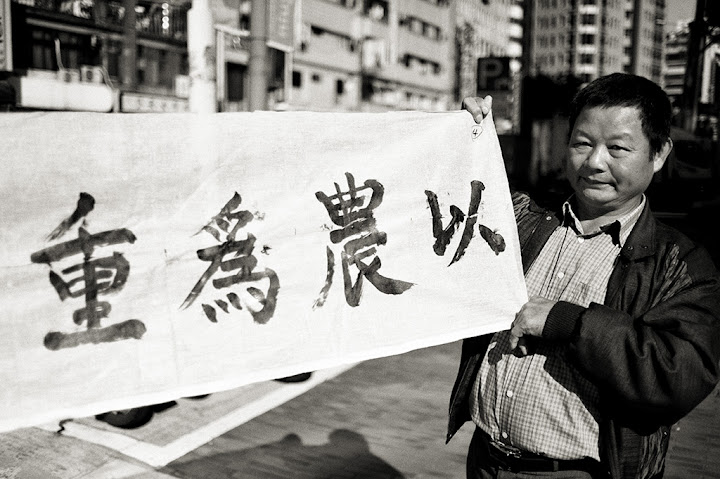 ④
以農為重
P